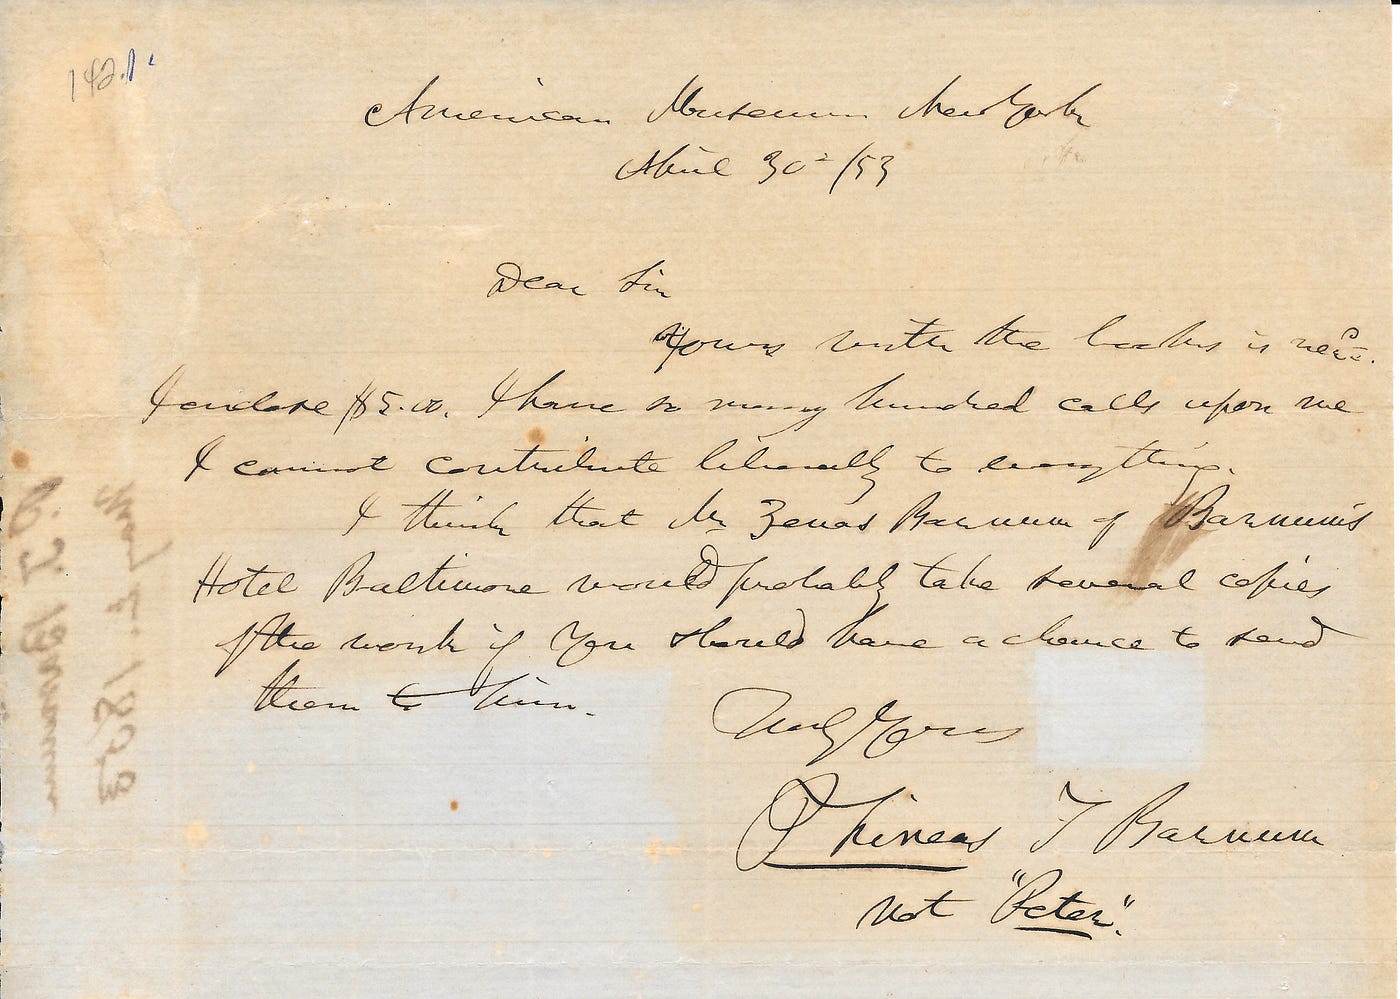 142.1
American Museum New York
April 30 /53
Dear Sir
Yours with the books is recd.
I enclose $5.00. I have so many hundred calls upon me
I cannot contribute liberally to everything.
I think that Mr Zenas Barnum of Barnum's
Hotel Baltimore would probably take several copies
of the work if you should have a chance to send
them to him.
Truly Yours
Phineas T Barnum
not "Peter".
P. T. Barnum
1853